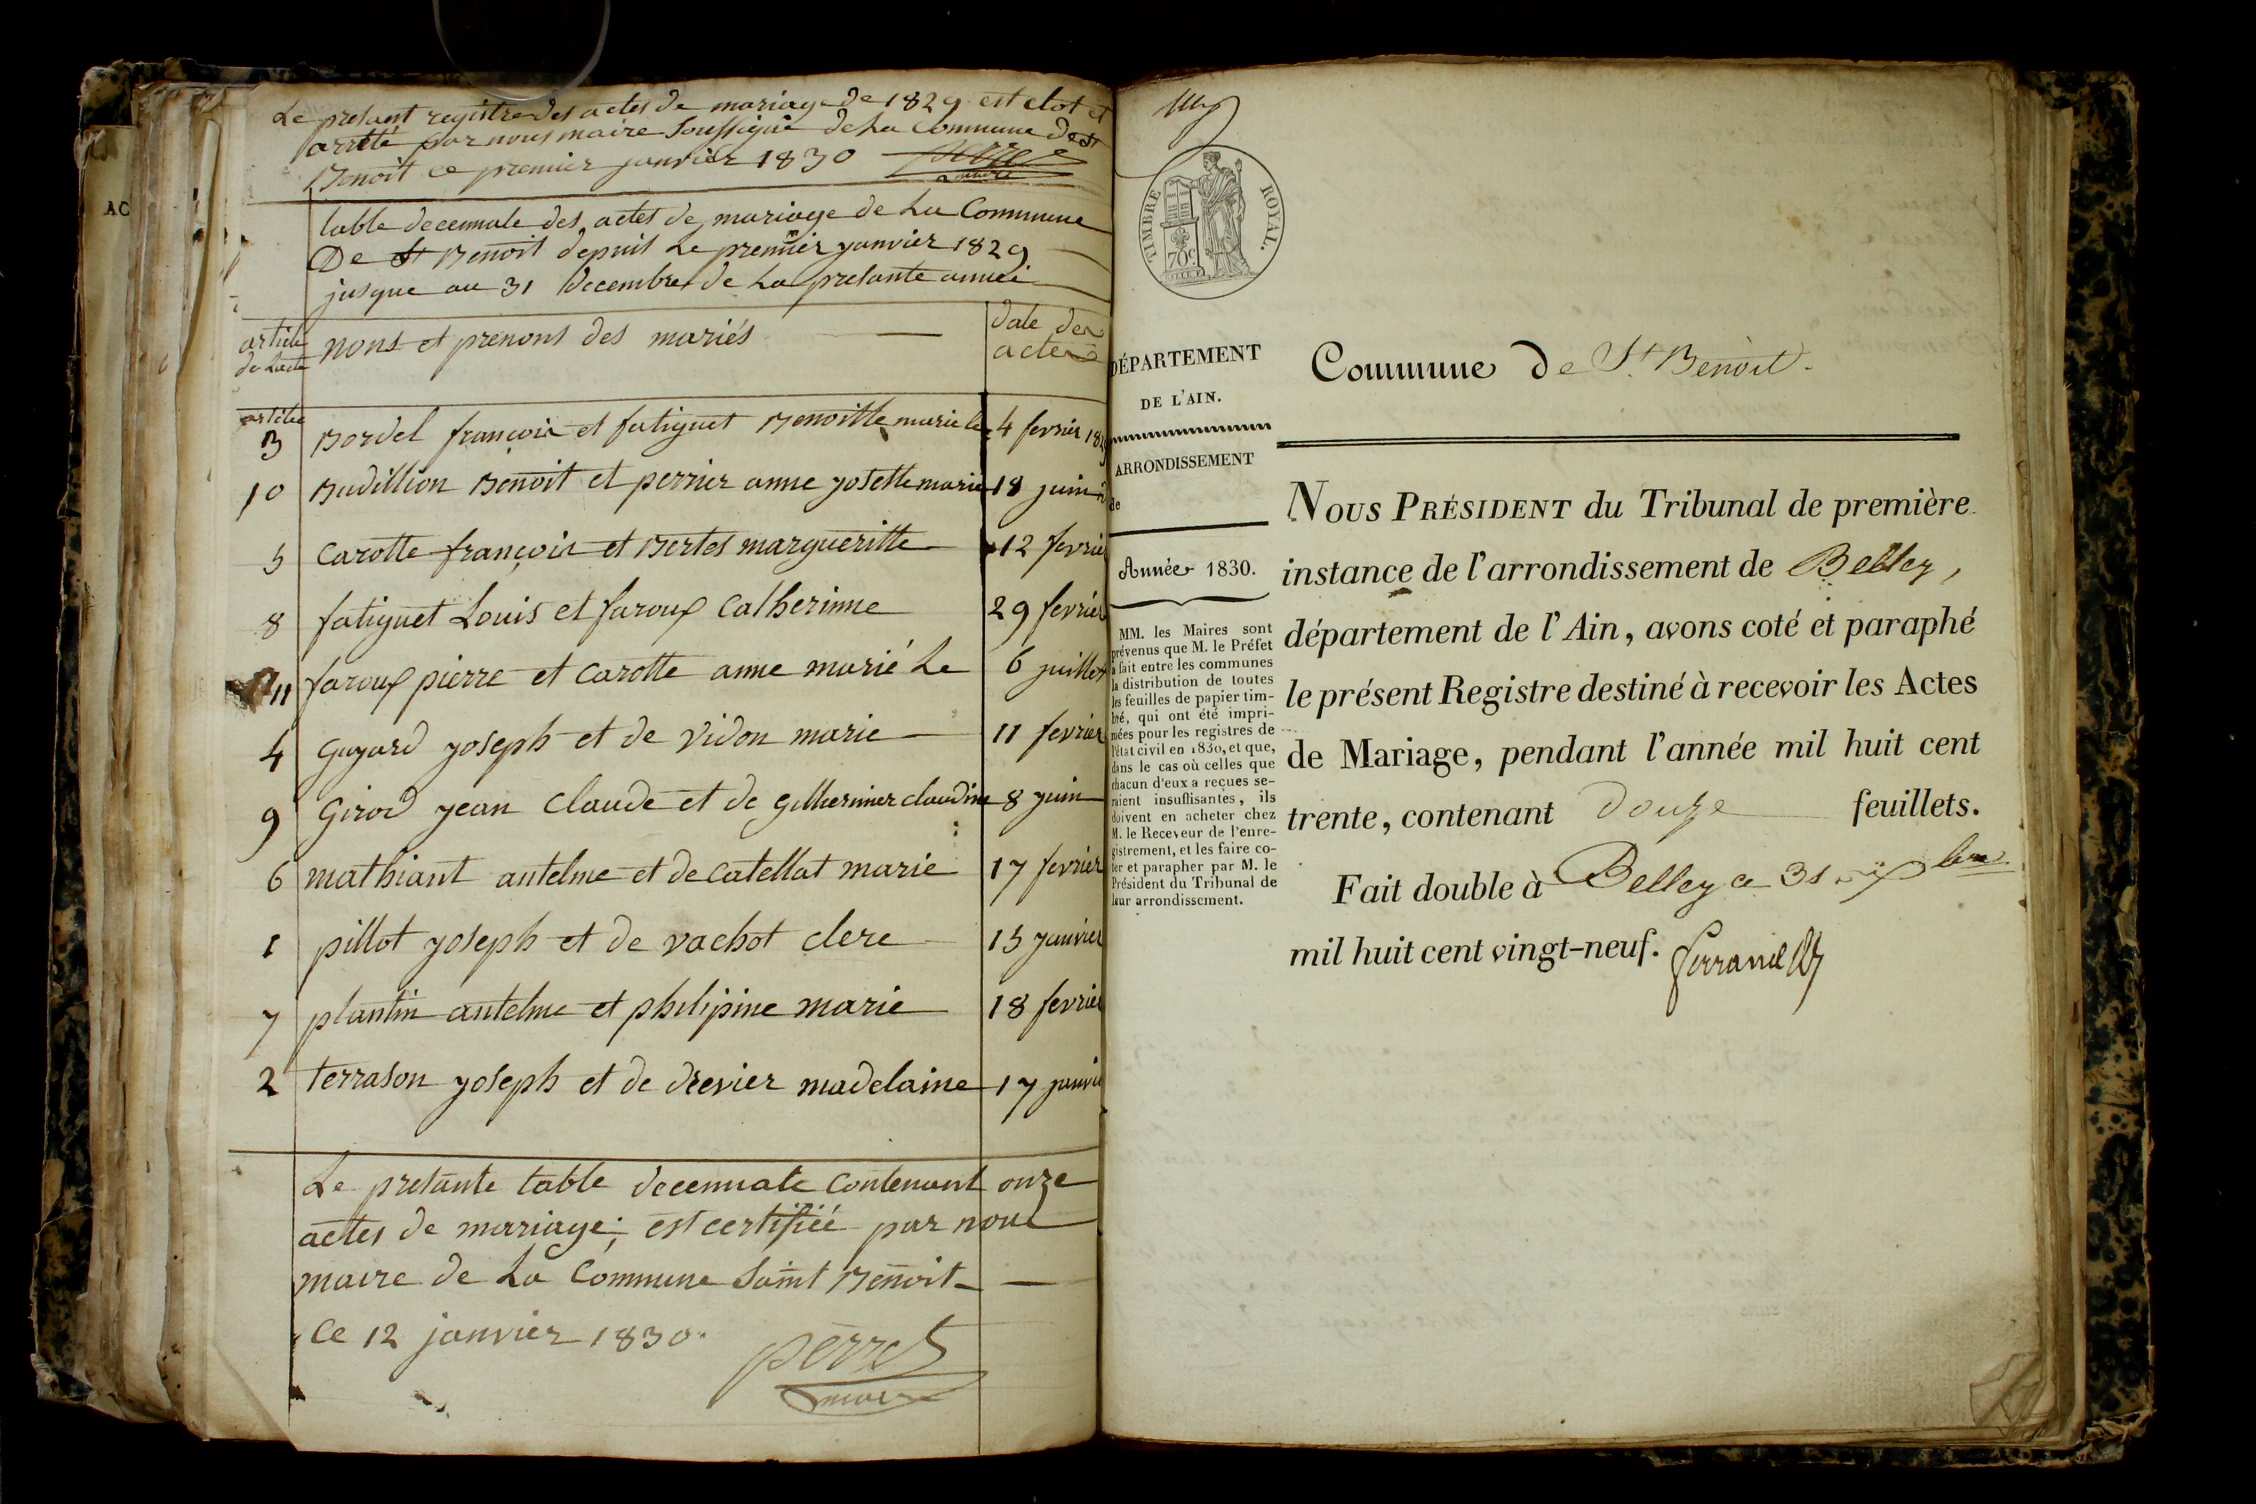 Le presant registre des actes de mariage de 1829 est clot et
arrêté par nous maire soussigné de la Commune de St
Benoit ce premier janvier 1830 perret
maire
table decennale des actes de mariage de La Commune
De St Benoit depuis Le premier janvier 1829
jusque au 31 Decembre de La presante année
article
de Lacte
nons et prenons des mariés
date des
actes
article
3 Bordel françois et fatiguet Benoitte marie le 4 fevrier 1829
10 Budillion Benoit et perrier anne josette marie 18 juin
5 Carotte françois et Bertet margueritte 12 fevrier
8 fatiguet Louis et faroux Catherinne 29 fevrier
11 faroux pierre et Carotte anne marié Le 6 juillet
4 guyard joseph et de vidon marie 11 fevrier
9 girod jean Claude et de gilherimer claudine 8 juin
6 mathiant antelme et de Catellat marie 17 fevrier
1 pillot joseph et de vachot clere 15 janvier
7 plantin antelme et philipine marie 18 fevrier
2 terrason joseph et de drevier madelaine 17 janvie
Le presante table decennale Contenant onze
actes de mariage; est certifiée par nous
maire de La Commune Saint Benoit
Ce 12 janvier 1830.
perret
maire
AC
TIMBRE ROYAL.
70c.
DÉPARTEMENT
DE L'AIN.
ARRONDISSEMENT
de
Année 1830.
MM. les Maires sont
prévenus que M. le Préfet
a fait entre les communes
la distribution de toutes
les feuilles de papier tim-
bré, qui ont été impri-
mées pour les registres de
l'état civil en 1830, et que,
dans le cas où celles que
chacun d'eux a reçues se-
raient insuffisantes, ils
doivent en acheter chez
M. le Receveur de l'enre-
gistrement, et les faire co-
ter et parapher par M. le
Président du Tribunal de
leur arrondissement.
Commune de St Benoit.
NOUS PRÉSIDENT du Tribunal de première
instance de l'arrondissement de Belley,
département de l'Ain, avons coté et paraphé
le présent Registre destiné à recevoir les Actes
de Mariage, pendant l'année mil huit cent
trente, contenant douze feuillets.
Fait double à Belley ce 31 xbre
mil huit cent vingt-neuf. ferrand